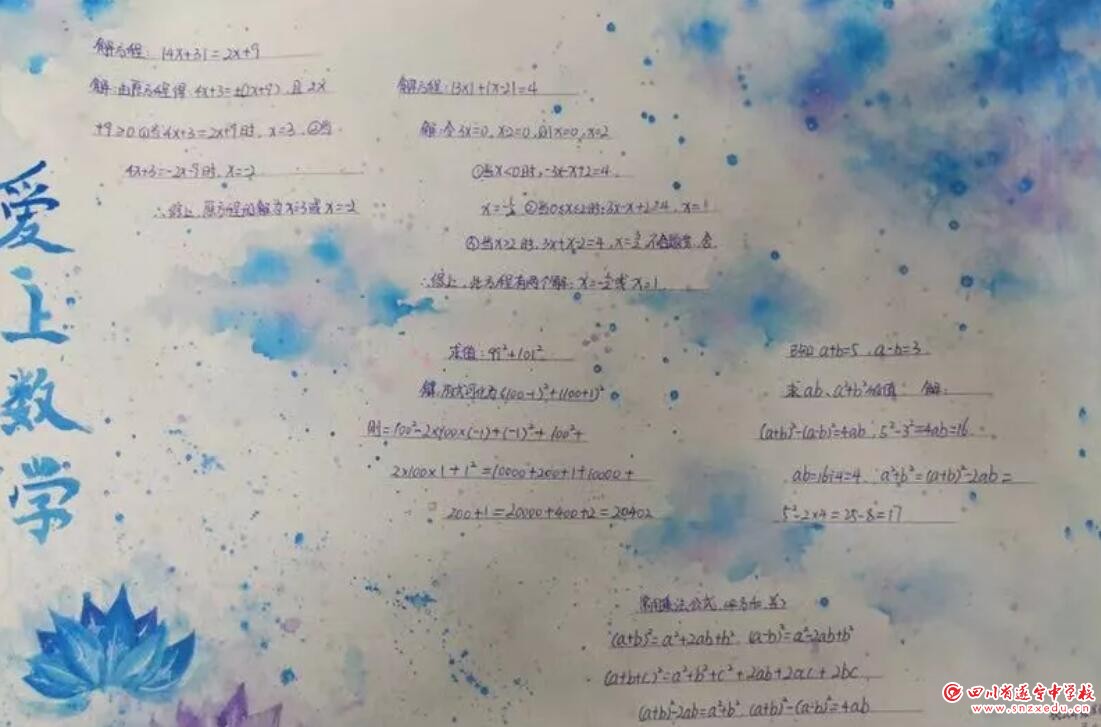 爱上数学
解方程：|4x+3|=2x+9
解：由原方程得，4x+3=±(2x+9)，且2x
+9≥0 ①当4x+3=2x+9时，x=3，②当
4x+3=-2x-9时，x=-2
∴综上，原方程的解为x=3或x=-2
解方程：|3x|+|x-2|=4
解：令3x=0，x-2=0，则x=0，x=2
①当x<0时，-3x-x+2=4
x=-1/2 ②当0≤x≤2时，3x-x+2=4，x=1
③当x>2时，3x+x-2=4，x=3/2 不合题意，舍
∴综上，此方程有两个解：x=-1/2或x=1
求值：99²+101²
解：原式可化为(100-1)²+(100+1)²
则=100²-2×100×(-1)+(-1)²+100²+
2×100×1+1²=10000+200+1+10000+
200+1=20000+400+2=20402
已知a+b=5，a-b=3
求ab、a²+b²的值 解：
(a+b)²-(a-b)²=4ab，5²-3²=4ab=16
ab=16÷4=4，a²+b²=(a+b)²-2ab=
5²-2×4=25-8=17
常用乘法公式
(a+b)²=a²+2ab+b² (a-b)²=a²-2ab+b²
(a+b+c)²=a²+b²+c²+2ab+2ac+2bc
(a+b)²-2ab=a²+b² (a+b)²-(a-b)²=4ab
四川省遂宁中学校
www.snzxedu.cn